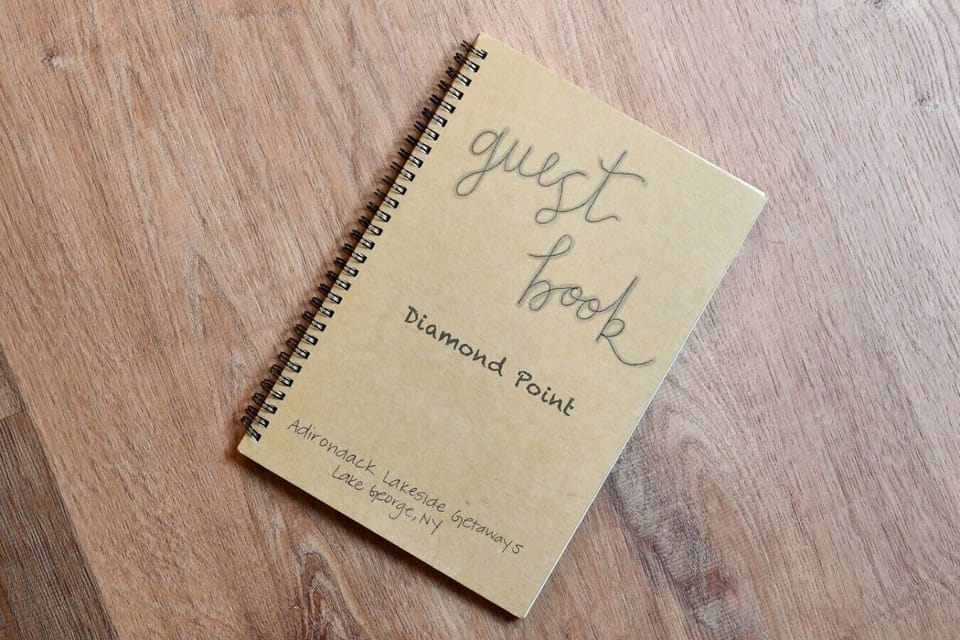 guest
book
Diamond Point
Adirondack Lakeside Getaways
Lake George, NY